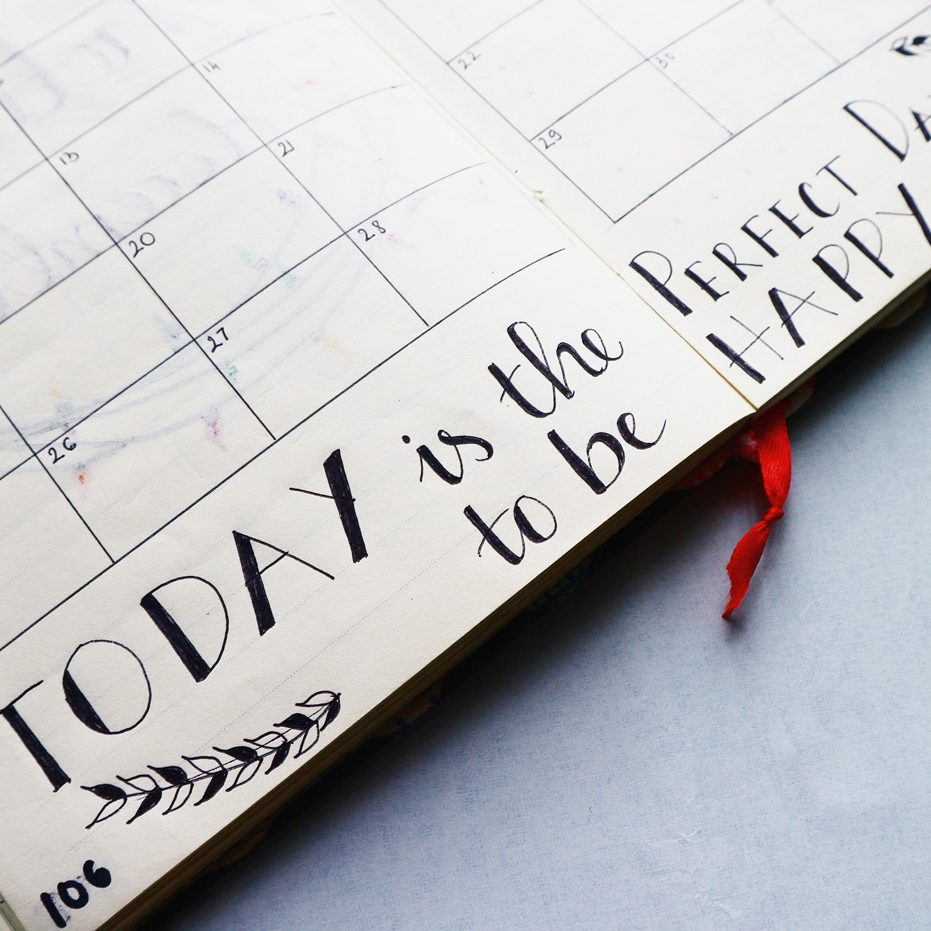 13 14
20 21
26 27 28
TODAY is the
to be
106
22
29 30
PERFECT DA
HAPPY